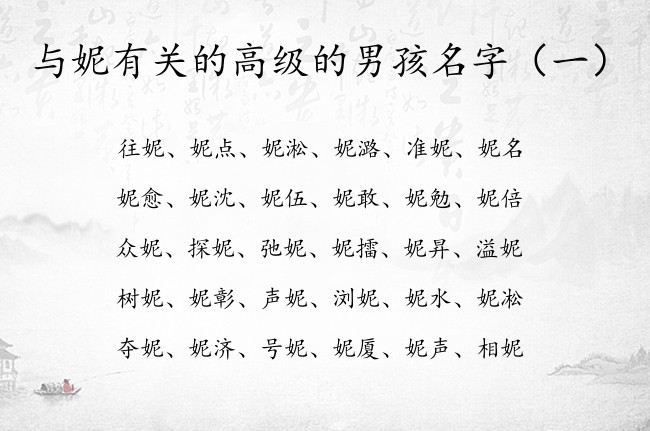 与妮有关的高级的男孩名字（一）
往妮、妮点、妮淞、妮潞、准妮、妮名
妮愈、妮沈、妮伍、妮敢、妮勉、妮倍
众妮、探妮、弛妮、妮擂、妮昇、溢妮
树妮、妮彰、声妮、浏妮、妮水、妮凇
夺妮、妮济、号妮、妮厦、妮声、相妮